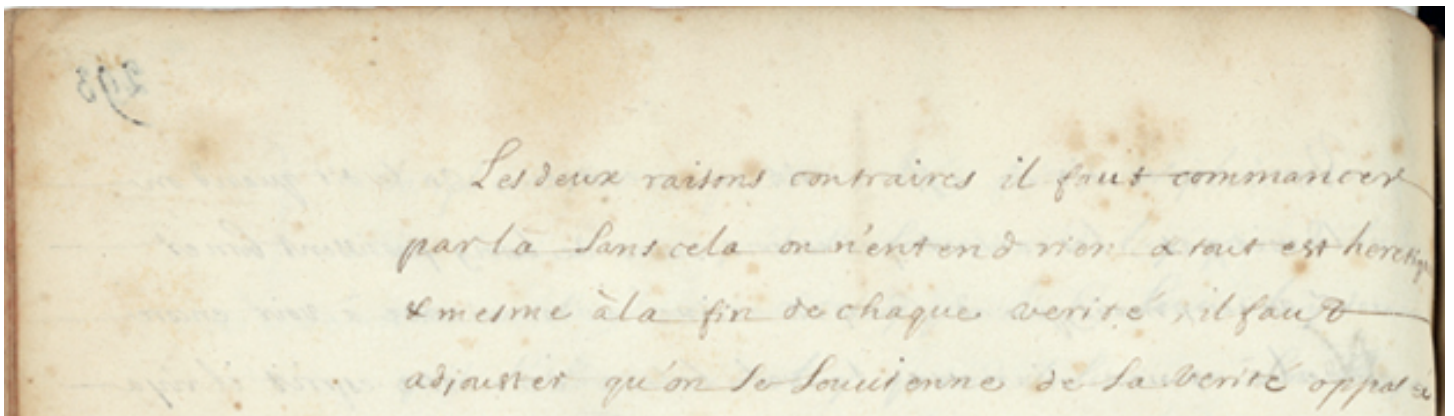 293
Les deux raisons contraires il faut commancer
par la Sans cela on n'entend rien & tout est heretique
& mesme à la fin de chaque verité, il faut
adjouster qu'on se souvienne de la verité opposée